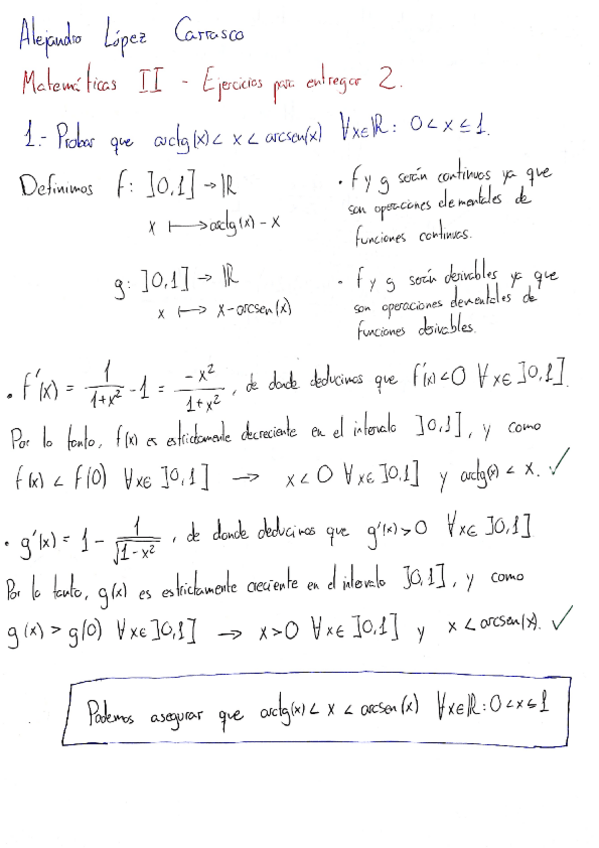 Alejandro López Carrasco
Matemáticas II - Ejercicios para entregar 2.
1.- Probar que arctg(x) < x < arcsen(x) ∀x∈ℝ: 0 < x ≤ 1.
Definimos f: ]0,1] → ℝ
x ⟼ arctg(x) - x
• f y g serán continuas ya que
son operaciones elementales de
funciones continuas.
g: ]0,1] → ℝ
x ⟼ x - arcsen(x)
• f y g serán derivables ya que
son operaciones elementales de
funciones derivables.
• f'(x) = 1/(1+x²) - 1 = -x²/(1+x²), de donde deducimos que f'(x) < 0 ∀x∈ ]0,1].
Por lo tanto, f(x) es estrictamente decreciente en el intervalo ]0,1], y como
f(x) < f(0) ∀x∈ ]0,1] → x < 0 ∀x∈ ]0,1] y arctg(x) < x. ✓
• g'(x) = 1 - 1/√(1-x²), de donde deducimos que g'(x) > 0 ∀x∈ ]0,1]
Por lo tanto, g(x) es estrictamente creciente en el intervalo ]0,1], y como
g(x) > g(0) ∀x∈ ]0,1] → x > 0 ∀x∈ ]0,1] y x < arcsen(x). ✓
Podemos asegurar que arctg(x) < x < arcsen(x) ∀x∈ℝ: 0 < x ≤ 1